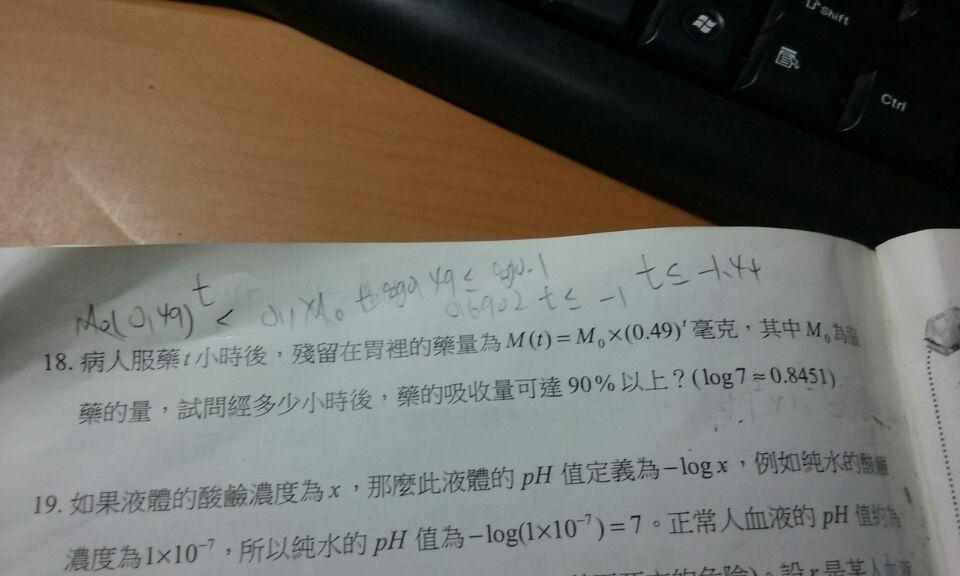 Shift
Ctrl
M₀(0.49)^t < 0.1×M₀ t log0.49 ≤ log0.1 t ≤ -1.44
0.6902 t ≤ -1
18. 病人服藥t小時後，殘留在胃裡的藥量為M(t)=M₀×(0.49)^t毫克，其中M₀為服
藥的量，試問經多少小時後，藥的吸收量可達90%以上？(log7≈0.8451)
19. 如果液體的酸鹼濃度為x，那麼此液體的pH值定義為-log x，例如純水的酸鹼
濃度為1×10⁻⁷，所以純水的pH值為-log(1×10⁻⁷)=7。正常人血液的pH值約為
設r是某人血液